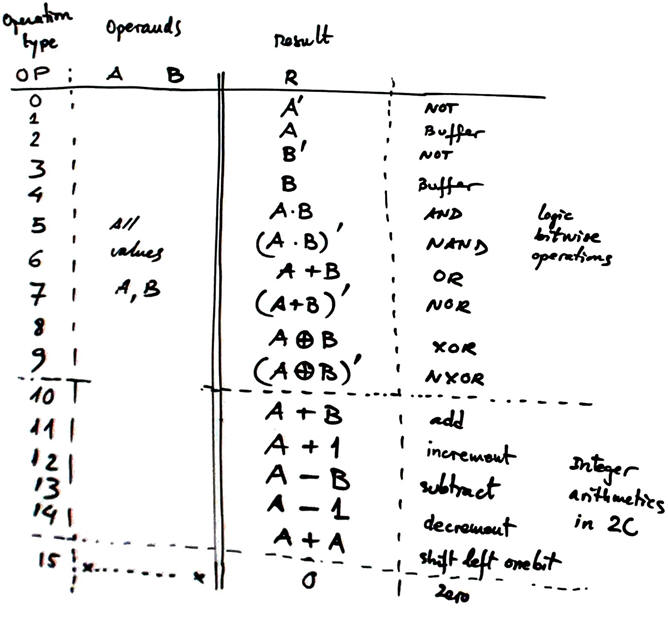 Operation type Operands Result
OP A B R
0 A' NOT
1 A Buffer
2 B' NOT
3 B Buffer
4 A·B AND
5 All (A·B)' NAND logic bitwise operations
6 values A+B OR
7 A, B (A+B)' NOR
8 A⊕B XOR
9 (A⊕B)' NXOR
10 A+B add
11 A+1 increment
12 A−B subtract Integer arithmetics in 2C
13 A−1 decrement
14 A+A shift left onebit
15 x x 0 Zero